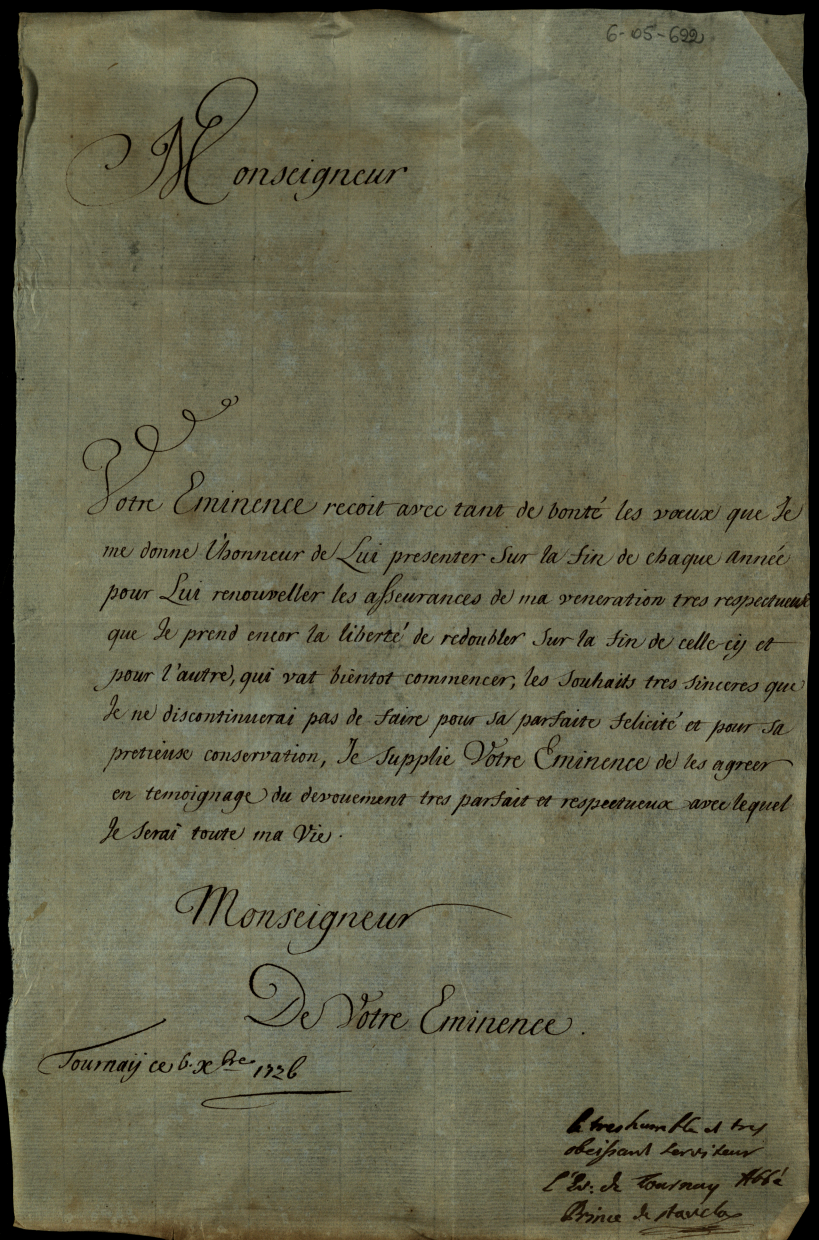 6-05-622
Monseigneur
Votre Eminence recoit avec tant de bonté les vœux que Je
me donne l'honneur de Lui presenter sur la fin de chaque année
pour Lui renouveller les asseurances de ma veneration tres respectueuse
que Je prend encor la liberté de redoubler sur la fin de celle cÿ et
pour l'autre, qui vat bientot commencer, les souhaits tres sinceres que
Je ne discontinuerai pas de faire pour sa parfaite felicité et pour sa
pretieuse conservation, Je supplie Votre Eminence de les agreer
en temoignage du devouement tres parfait et respectueux avec lequel
Je serai toute ma Vie.
Monseigneur
De Votre Eminence.
Tournaÿ ce 6. xbre 1726
le tres humble et tres
obeissant serviteur
l'Ev: de Tournay Abbé
Prince de Stavelo